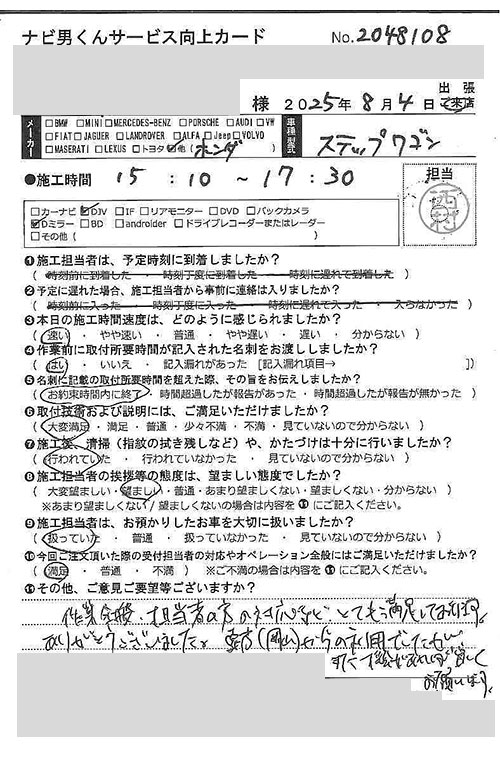 ナビ男くんサービス向上カード No.2048108
様 2025年8月4日 出張 ご来店
メーカー □BMW □MINI □MERCEDES-BENZ □PORSCHE □AUDI □VW
□FIAT □JAGUER □LANDROVER □ALFA □Jeep □VOLVO
□MASERATI □LEXUS □トヨタ ☑他 (ホンダ)
車種型式 ステップワゴン
●施工時間 15:10～17:30
担当
西村
□カーナビ ☑DJV □IF □リアモニター □DVD □バックカメラ
☑Dミラー □BD □androider □ドライブレコーダーまたはレーダー
□その他 ( )
❶施工担当者は、予定時刻に到着しましたか?
( 時刻前に到着した ・ 時刻丁度に到着した ・ 時刻に遅れて到着した )
❷予定に遅れた場合、施工担当者から事前に連絡は入りましたか?
( 時刻前に入った ・ 時刻丁度に入った ・ 時刻に遅れて入った ・ 入らなかった )
❸本日の施工時間速度は、どのように感じられましたか?
( 速い ・ やや速い ・ 普通 ・ やや遅い ・ 遅い ・ 分からない )
❹作業前に取付所要時間が記入された名刺をお渡ししましたか?
( はい ・ いいえ ・ 記入漏れがあった [記入漏れ項目→ ])
❺名刺に記載の取付所要時間を超えた際、その旨をお伝えしましたか?
( お約束時間内に終了 ・ 時間超過したが報告があった ・ 時間超過したが報告が無かった )
❻取付技術および説明には、ご満足いただけましたか?
( 大変満足 ・ 満足 ・ 普通 ・ 少々不満 ・ 不満 ・ 見ていないので分からない )
❼施工後、清掃(指紋の拭き残しなど)や、かたづけは十分に行いましたか?
( 行われていた ・ 行われていなかった ・ 見ていないので分からない )
❽施工担当者の挨拶等の態度は、望ましい態度でしたか?
( 大変望ましい ・ 望ましい ・ 普通 ・ あまり望ましくない ・ 望ましくない ・ 分からない )
※あまり望ましくない / 望ましくないの場合は内容を⓫にご記入ください。
❾施工担当者は、お預かりしたお車を大切に扱いましたか?
( 扱っていた ・ 普通 ・ 扱っていなかった ・ 見ていないので分からない )
❿今回ご注文頂いた際の受付担当者の対応やオペレーション全般にはご満足いただけましたか?
( 満足 ・ 普通 ・ 不満 ) ※ご不満の場合は内容を⓫にご記入ください。
⓫その他、ご意見ご要望等ございますか?
作業全般、担当者の方の対応など、とても満足しております。
ありがとうございました。 (岡山)からの利用でしたが、
また機会があれば宜しく
お願いします。